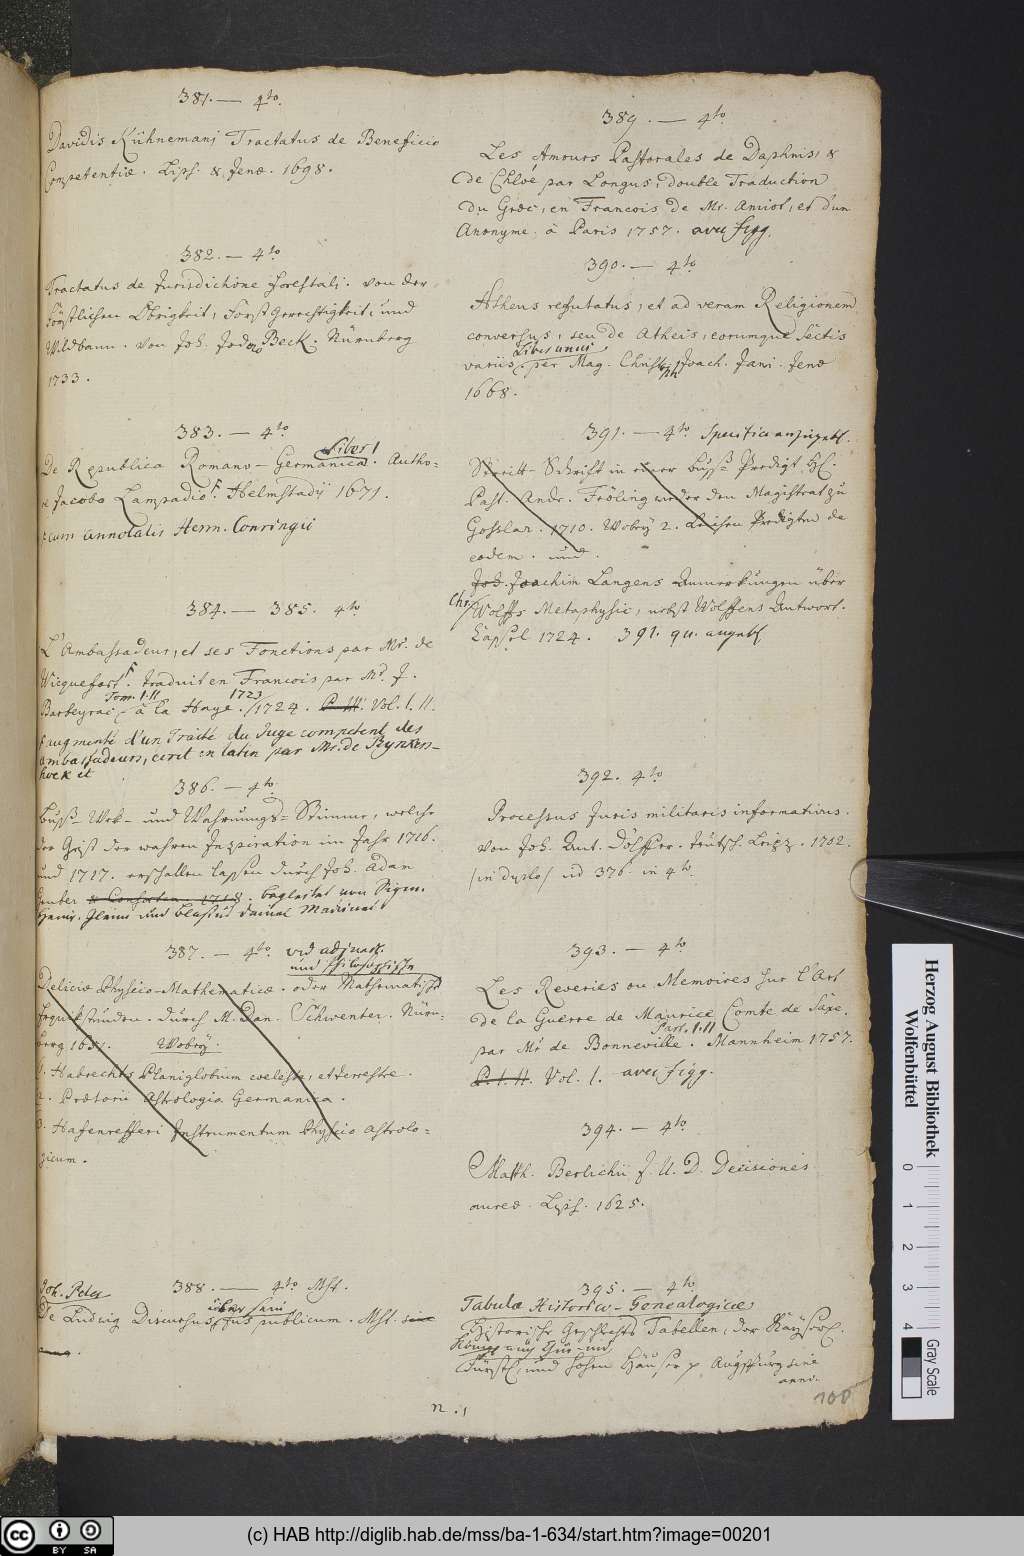 381. — 4to.
Davidis Kühnemanj Tractatus de Beneficio
Competentiæ. Lips. & Jenæ. 1698.
382. — 4to
Tractatus de Jurisdictione Forestali. von der
Förstlichen Obrigkeit, Forst Gerechtigkeit, und
Wildbann. von Joh. Jodo Beck. Nürnberg
1733.
383. — 4to
De Republica Romano-Germanica. Liber 1 Autho-
re Jacobo Lampadio. Helmstadij 1671.
cum annotatis Herm. Conringii
384. — 385. 4to
L'Ambassadeur, et ses Fonctions par Mr. de
Wicquefort. traduit en Francois par Mr. J.
Barbeyrac Tom. I. II à la Haye. 1723 /1724. Vol. I. II.
augmenté d'un Traité du Juge competent des
ambassadeurs, ecrit en latin par Mr. de Bynkers-
hoek et
386. — 4to
Buß- Wek- und Wahrnungs- Stimme, welche
der Geist der wahren Inspiration im Jahr 1716.
und 1717. erschallen lassen durch Joh. Adam
Gruber & Consorten 1718. begleitet von Sigm.
Henr. Gleim und Blasius Daniel Macinat
387. — 4to. vid adjunct.
und Philosophische
Deliciæ Physico-Mathematicæ. oder Mathematische
Erquikstunden. durch M. Dan. Schwenter. Nürn-
berg 1651. Wobey:
1. Habrechts Planiglobium coeleste, et terrestre.
2. Prætorii Astrologia Germanica.
3. Hafenrefferi Instrumentum Physico astrolo-
gicum.
388. — 4to Mst.
Joh. Peter
De Ludwig Discursus über sein Jus publicum. Mst. sine
anno.
389. — 4to
Les Amours Pastorales de Daphnis, &
de Chloé par Longus, double Traduction
du Grec, en Francois de Mr. Amiot, et d'un
Anonyme. à Paris 1757. avec figg.
390. — 4to
Atheus refutatus, et ad veram Religionem
conversus, seu de Atheis, eorumque Sectis
variis. Liber unus per Mag. Christoph. Joach. Jani. Jenæ
1668.
391. — 4to Specifice anzugebl.
Streitt-Schrift in einer Buß-Predigt H.
Past. Andr. Fröling wider den Magistrat zu
Gosslar. 1710. Wobey 2. Leichen Predigten de
eodem. und.
Joh. Joachim Langens Anmerkungen über
Chr. Wolffs Metaphysic, nebst Wolffens Antwort.
Caßel 1724. 391. qu. angebl
392. 4to
Processus Juris militaris informativus.
von Joh. Ant. Dölffer. teutsch. Leipz. 1702.
/in duplo/ vid 376. in 4to
393. — 4to
Les Reveries ou Memoires sur l'Art
de la Guerre de Maurice Comte de Saxe.
par Mr de Bonneville. Part. I. II Mannheim 1757.
P. I. II. Vol. 1. avec figg.
394. — 4to
Matth. Berlichii J. U. D. Decisiones
aureæ. Lips. 1625.
395. — 4to
Tabulæ Historico-Genealogicæ
Historische Geschlechts Tabellen, der Käyserl.
Königl. auch Chur- und
Fürstl. und hohen Häuser p. Augspurg sine
anno.
100
n. 1
Herzog August Bibliothek
Wolfenbüttel
0 1 2 3 4
Gray Scale
cc BY SA
(c) HAB http://diglib.hab.de/mss/ba-1-634/start.htm?image=00201